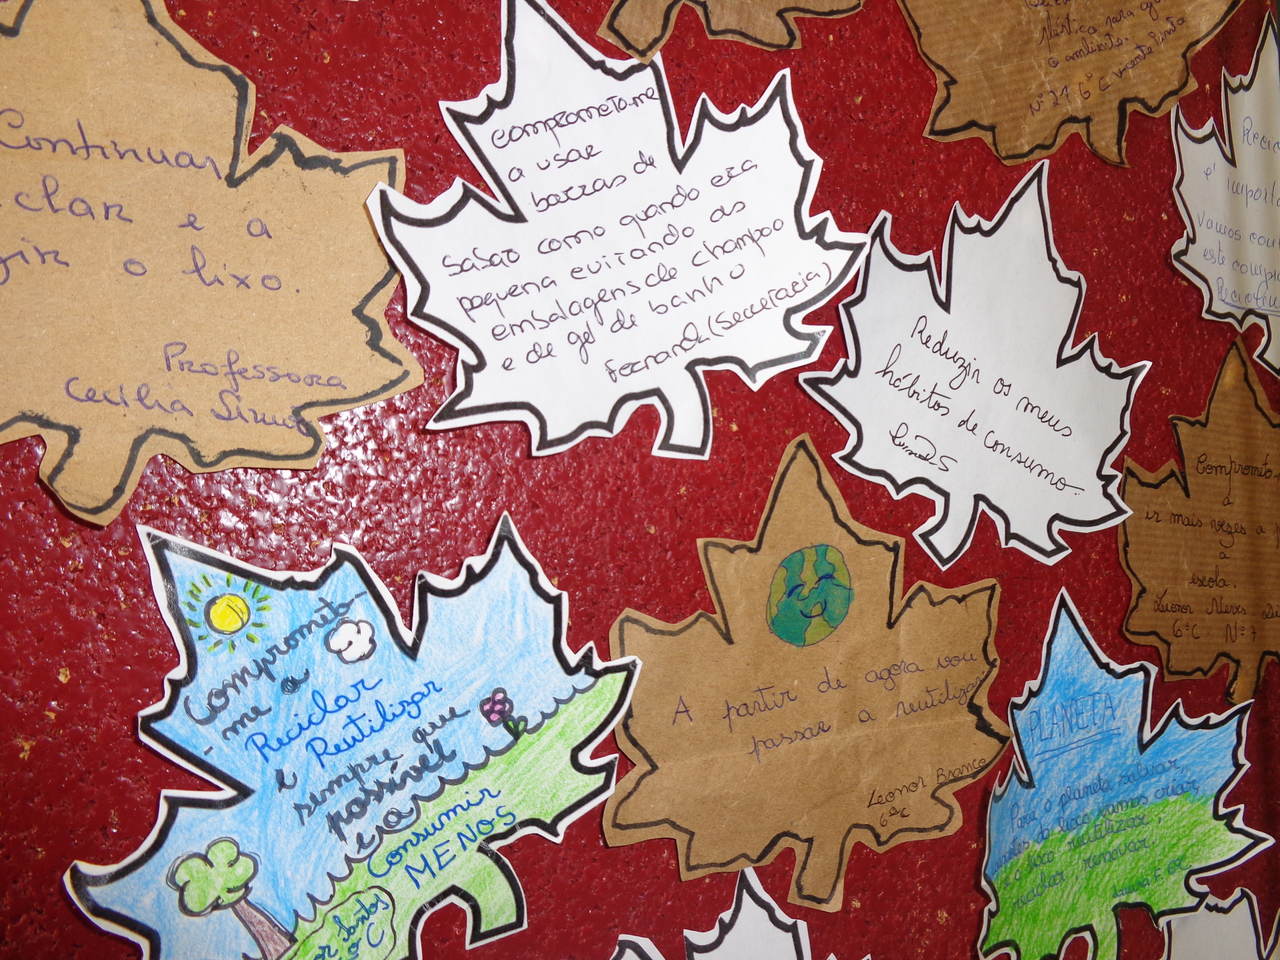 Continuar
clar e a
gir o lixo.
Professora
Cecília
comprometo-me
a usar
barras de
sasão como quando era
pequena evitando as
embalagens de champoo
e de gel de banho
Fernanda (Secretaria)
plástica para
o ambiente.
Nº 21 6ºC Vicente
Recic
é importa
Vamos con
este compr
Reduzir os meus
hábitos de consumo.
Comprometo
a
ir mais vezes a
a
escola.
Leonor Neves
6ºC Nº7
Comprometo-
-me a
Reciclar
e Reutilizar
sempre que
possível
e a
Consumir
MENOS
Santos
C
A partir de agora vou
passar a reutilizar
Leonor Branco
6ºC
PLANETA
Para o planeta salvar,
do lixo vamos criar,
o lixo reutilizar,
reciclar renovar.